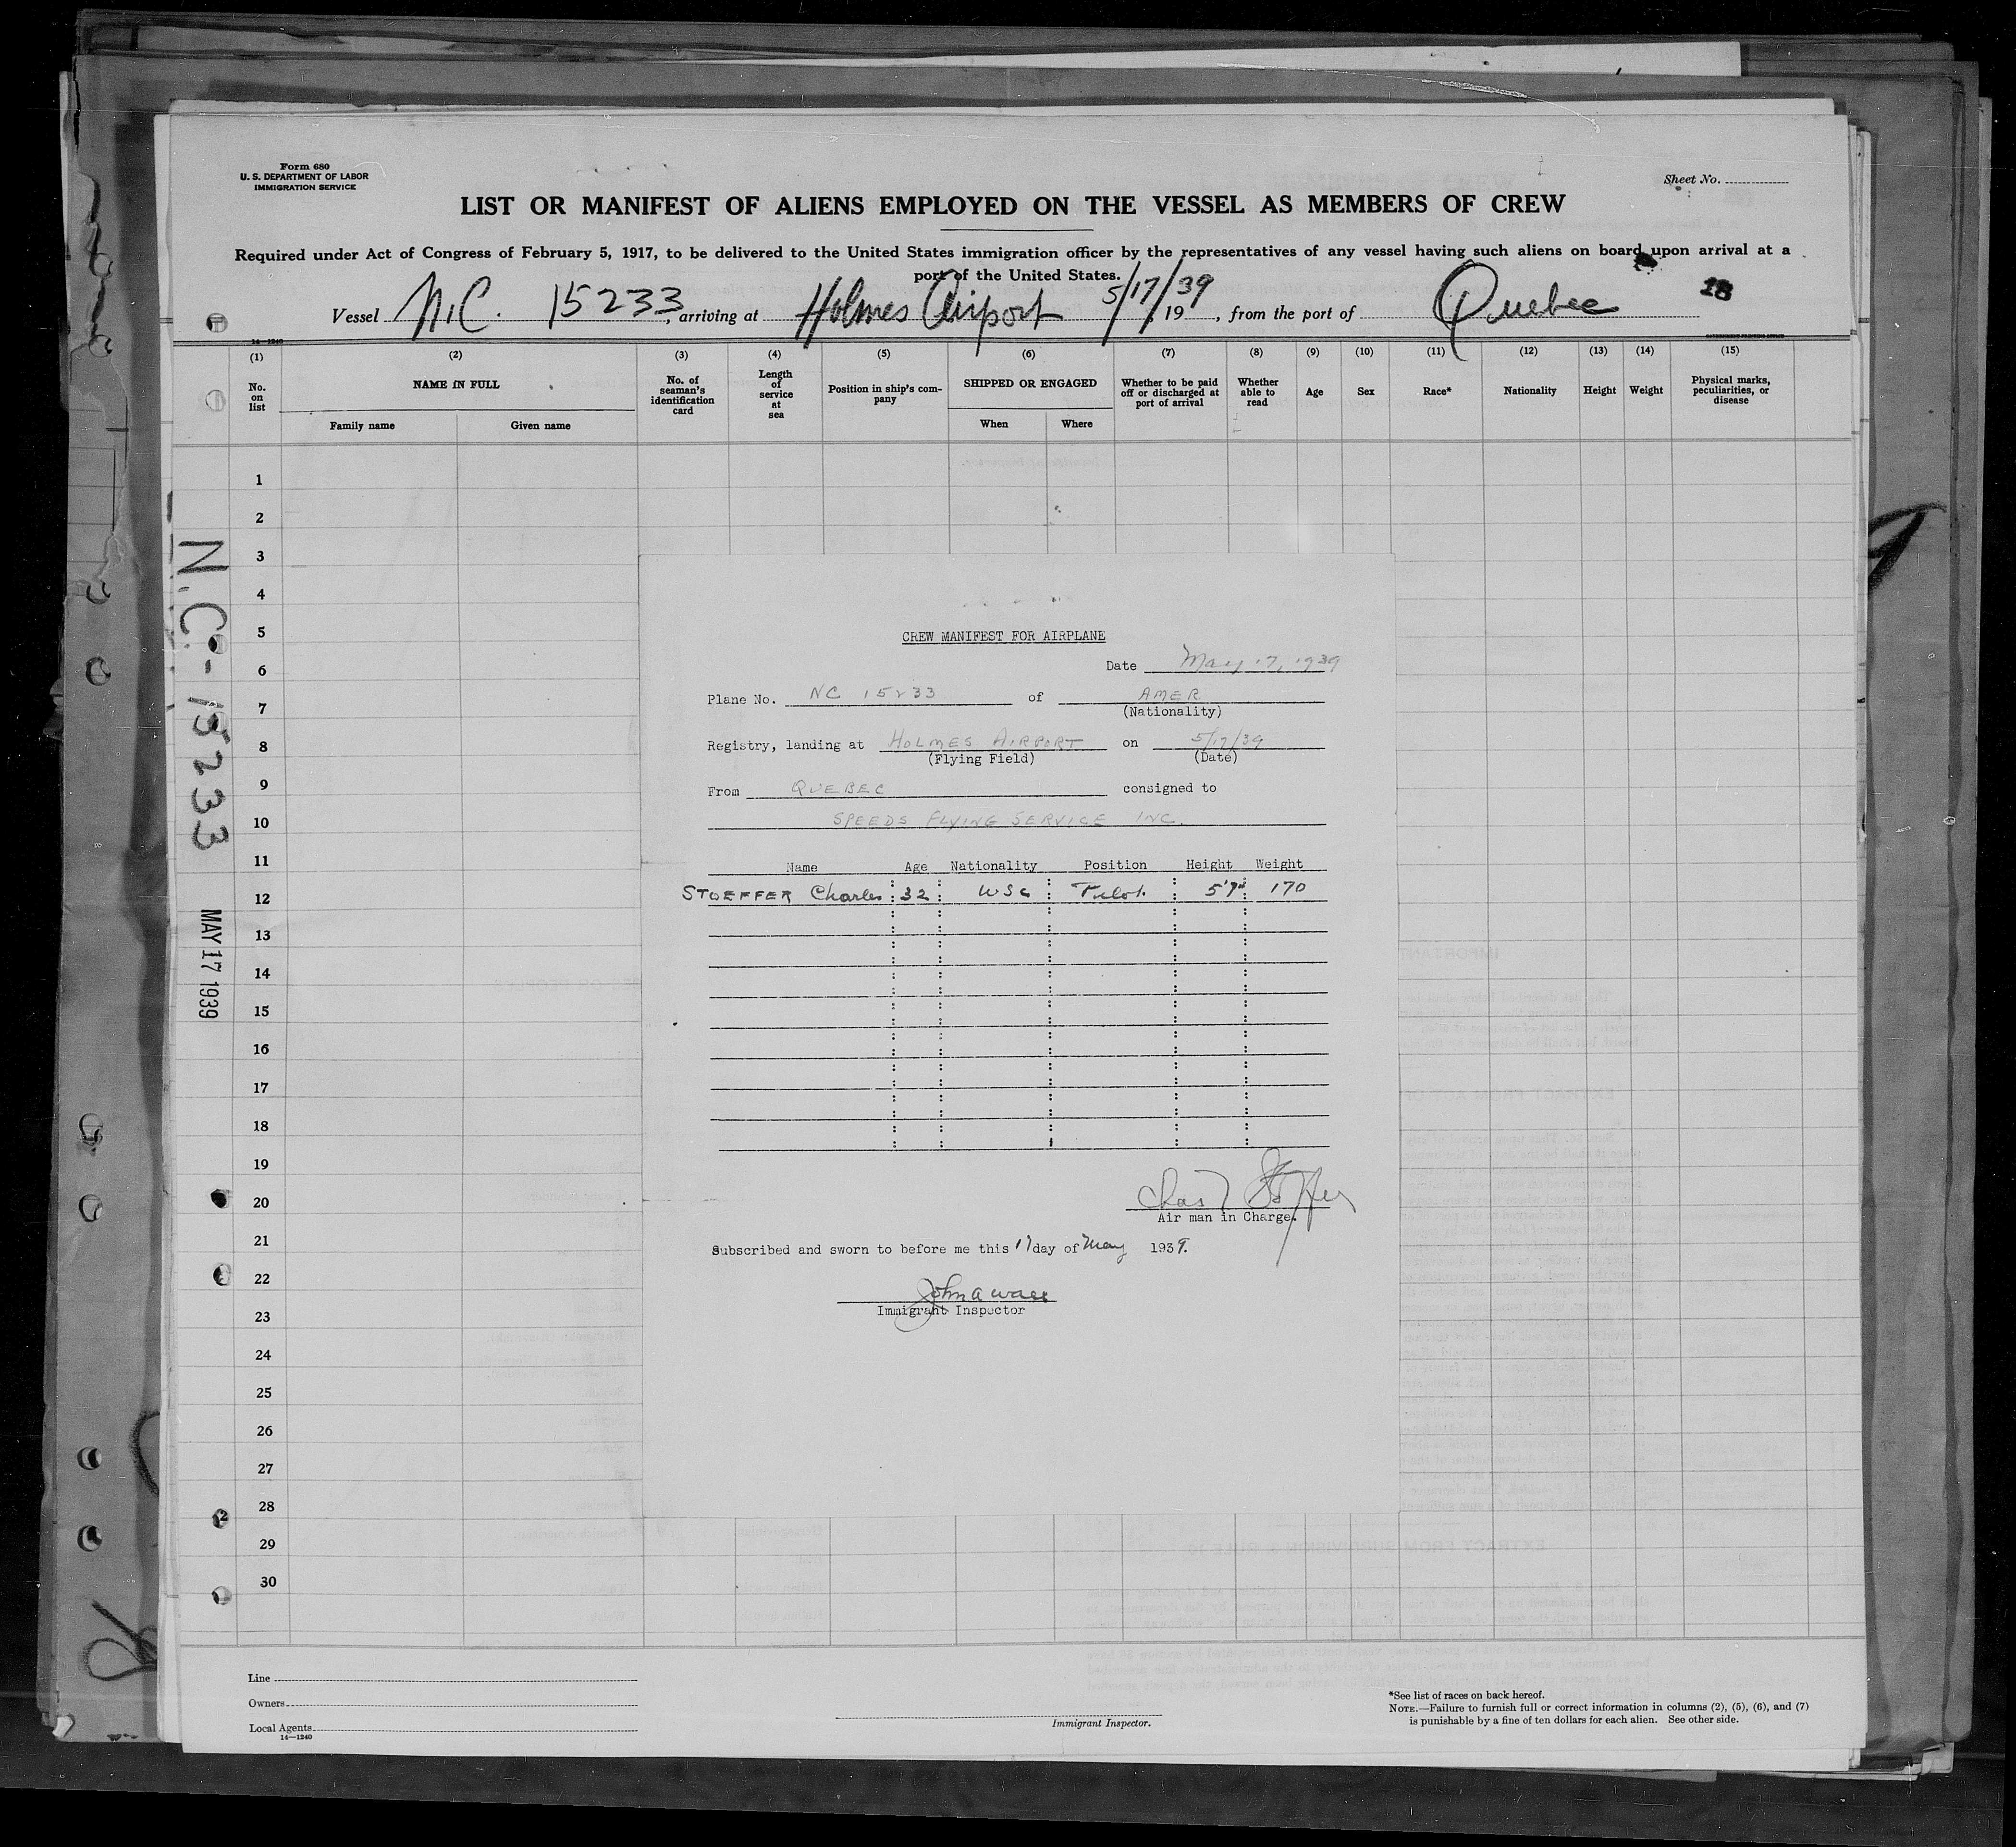 Form 680
U. S. DEPARTMENT OF LABOR
IMMIGRATION SERVICE
Sheet No.
LIST OR MANIFEST OF ALIENS EMPLOYED ON THE VESSEL AS MEMBERS OF CREW
Required under Act of Congress of February 5, 1917, to be delivered to the United States immigration officer by the representatives of any vessel having such aliens on board upon arrival at a
port of the United States.
Vessel N.C. 15233, arriving at Holmes Airport 5/17/39, 19 , from the port of Quebec
18
14—1240
(1) (2) (3) (4) (5) (6) (7) (8) (9) (10) (11) (12) (13) (14) (15)
No. on list
NAME IN FULL
Family name Given name
No. of seaman's identification card
Length of service at sea
Position in ship's company
SHIPPED OR ENGAGED
When Where
Whether to be paid off or discharged at port of arrival
Whether able to read
Age
Sex
Race*
Nationality
Height
Weight
Physical marks, peculiarities, or disease
1
2
3
4
5
6
7
8
9
10
11
12
13
14
15
16
17
18
19
20
21
22
23
24
25
26
27
28
29
30
N.C-15233
MAY 17 1939
CREW MANIFEST FOR AIRPLANE
Date May 17, 1939
Plane No. NC 15233 of AMER
(Nationality)
Registry, landing at HOLMES AIRPORT on 5/17/39
(Flying Field) (Date)
From QUEBEC consigned to
SPEEDS FLYING SERVICE INC.
Name Age Nationality Position Height Weight
STOEFFER Charles 32 USC Pilot 5'7" 170
Air man in Charge.
Subscribed and sworn to before me this 17 day of May 1939.
Immigrant Inspector
Line
Owners
Local Agents
14—1240
Immigrant Inspector.
*See list of races on back hereof.
NOTE.—Failure to furnish full or correct information in columns (2), (5), (6), and (7)
is punishable by a fine of ten dollars for each alien. See other side.